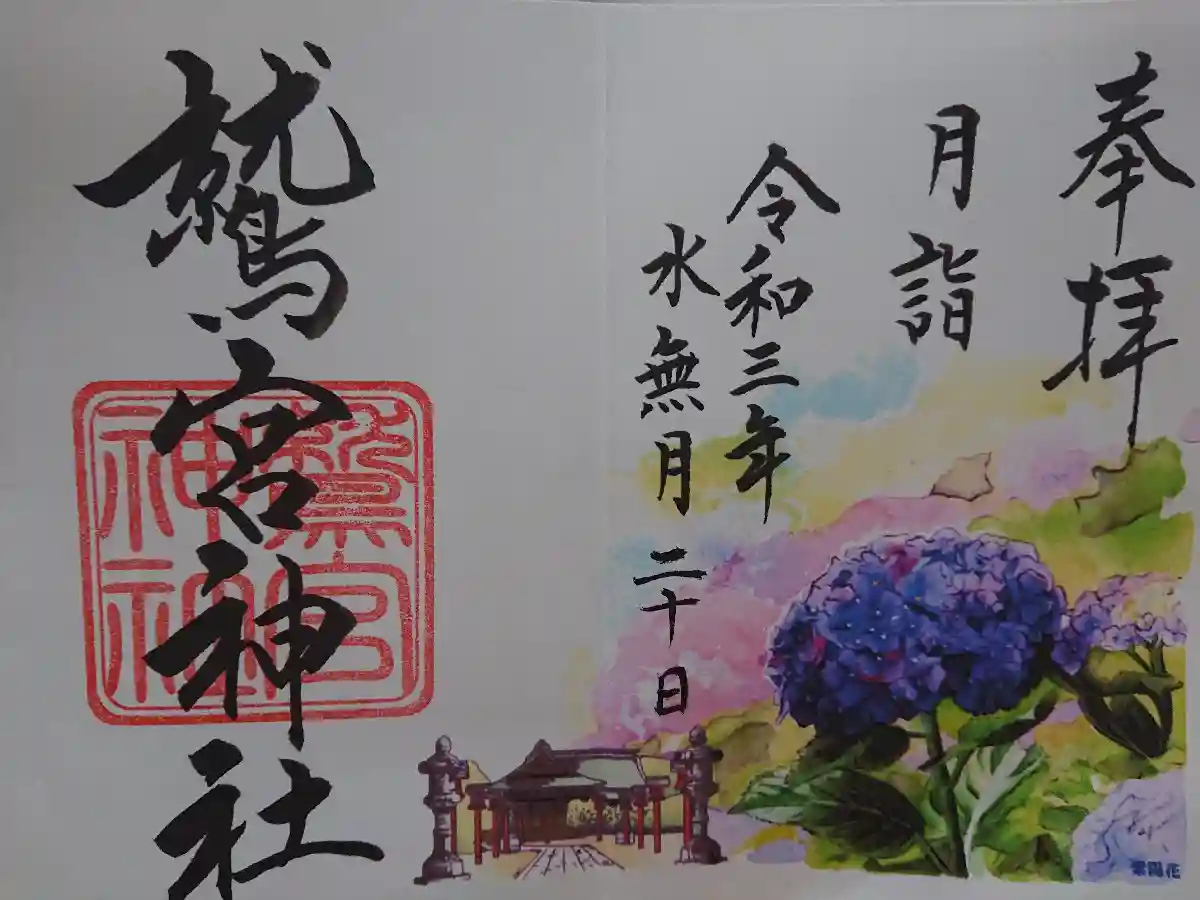 奉拝
月詣
令和三年
水無月二十日
鷲宮神社
鷲宮
神社
紫陽花